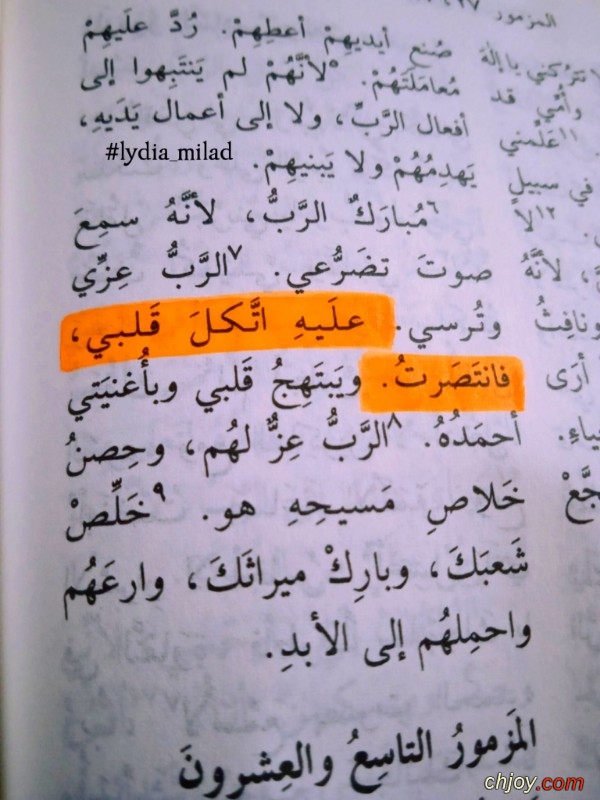 المزمور
صُنع أيديهِمْ أعطِهِمْ. رُدَّ علَيهِمْ
مُعامَلَتَهُمْ. ٥لأنَّهُمْ لم يَنتَبِهوا إلى
أفعال الرَّبِّ، ولا إلى أعمال يَدَيهِ،
يَهدِمُهُمْ ولا يَبنيهِمْ.
#lydia_milad
٦مُبارَكٌ الرَّبُّ، لأنَّهُ سمِعَ
صوتَ تضَرُّعي. ٧الرَّبُّ عِزِّي
وتُرسي. علَيهِ اتَّكلَ قَلبي،
فانتَصَرتُ. ويَبتَهِجُ قَلبي وبأُغنيَتي
أحمَدُهُ. ٨الرَّبُّ عِزٌّ لهُم، وحِصنُ
خَلاصِ مَسيحِهِ هو. ٩خَلِّصْ
شَعبَكَ، وبارِكْ ميراثَكَ، وارعَهُم
واحمِلهُم إلى الأبدِ.
المَزمورُ التاسِعُ والعِشرونَ
تترُكني يا إلهَ
وأُمِّي قد
١١علِّمني
في سبيلِ
١٢لا
لأنَّهُ
ونافِثُ
أرَى
chjoy.com